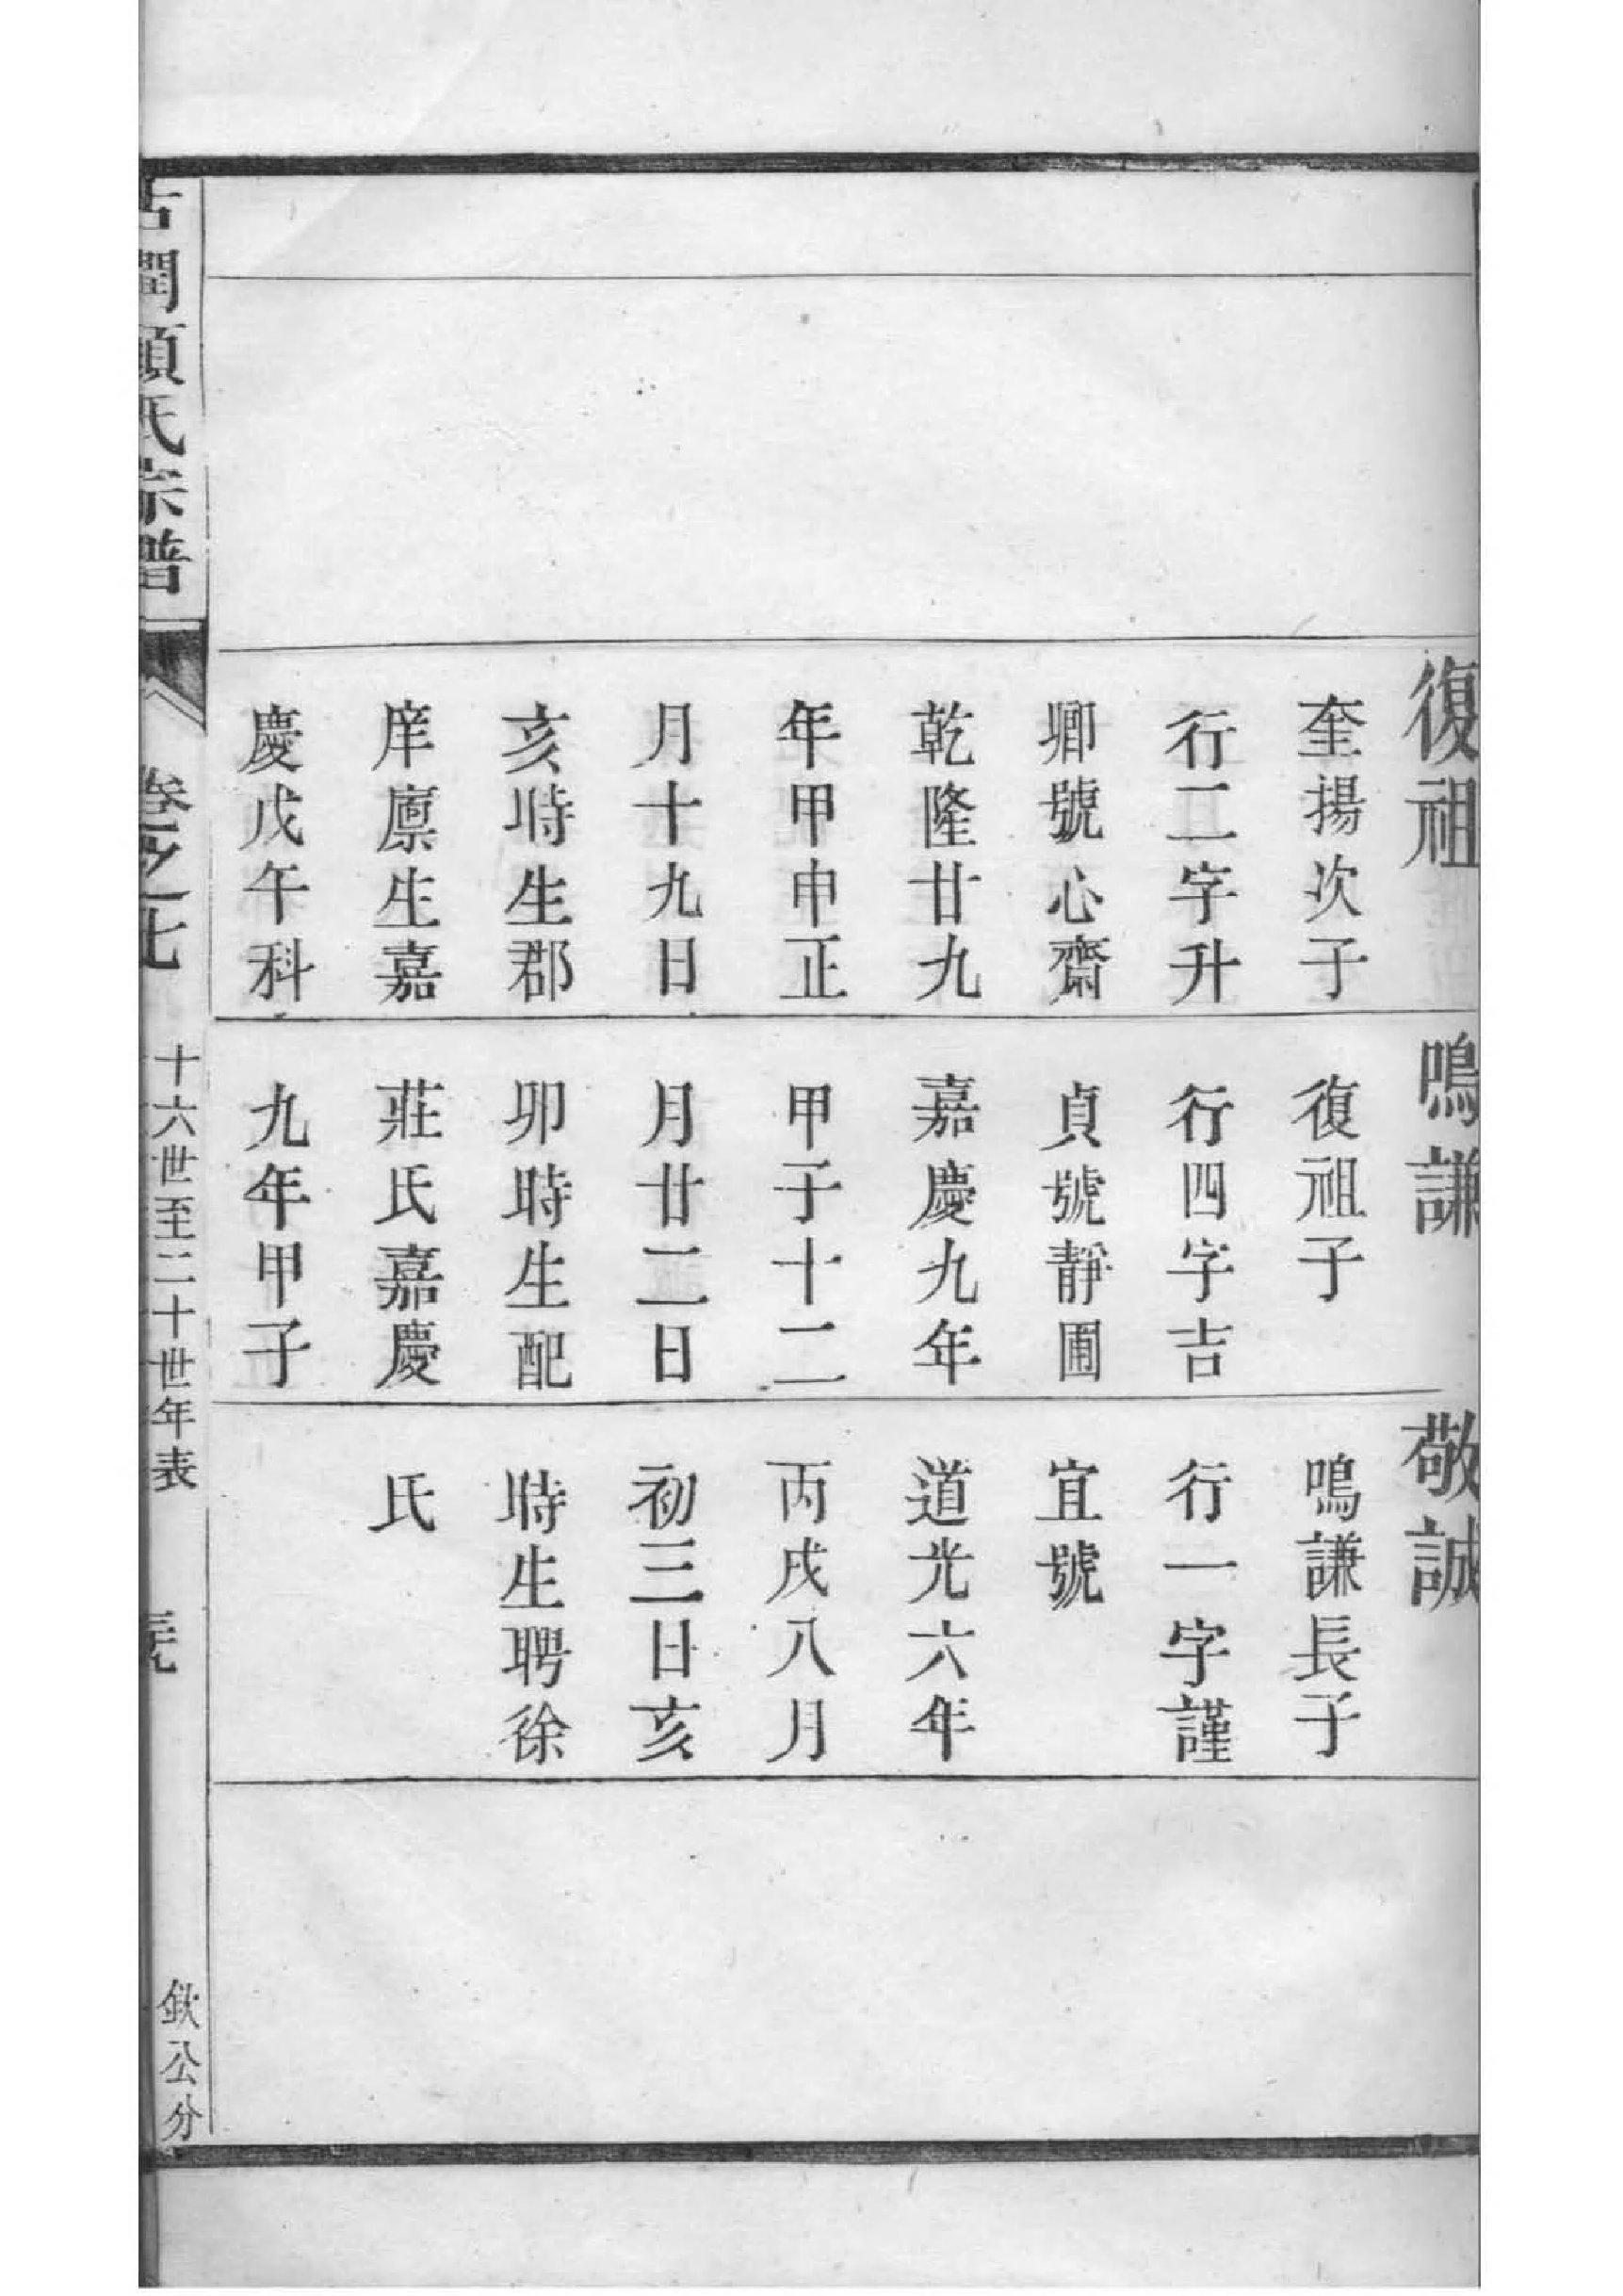 復祖
奎揚次子
行二字升
卿號心齋
乾隆廿九
年甲申正
月十九日
亥時生郡
庠廪生嘉
慶戊午科
鳴謙
復祖子
行四字吉
貞號靜圃
嘉慶九年
甲子十二
月廿二日
卯時生配
莊氏嘉慶
九年甲子
敬誠
鳴謙長子
行一字謹
宜號
道光六年
丙戌八月
初三日亥
時生聘徐
氏
古潤顧氏宗譜
卷之七
十六世至二十世年表
欽公分